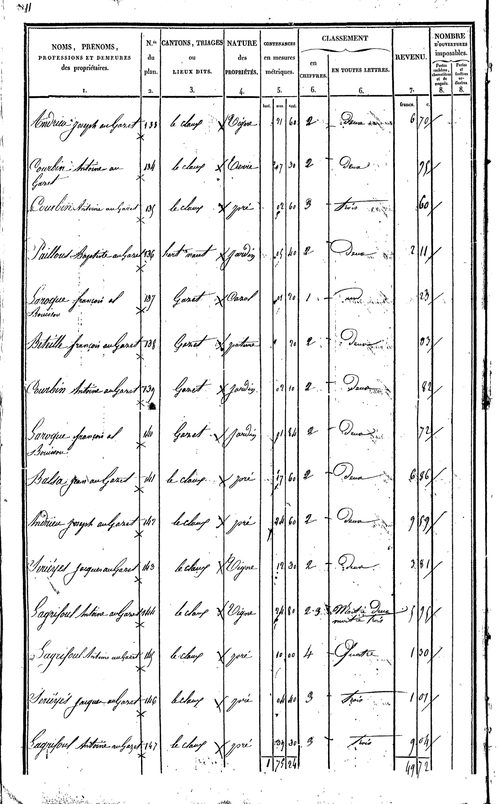 11
NOMS, PRÉNOMS, PROFESSIONS ET DEMEURES des propriétaires.
N.os du plan.
CANTONS, TRIAGES ou LIEUX DITS.
NATURE des PROPRIÉTÉS.
CONTENANCES en mesures métriques.
CLASSEMENT
en CHIFFRES.
EN TOUTES LETTRES.
REVENU.
NOMBRE D'OUVERTURES imposables.
1. 2. 3. 4. 5. 6. 6. 7. 8. 8.
francs. c.
Andrieu joseph au Garet 133 le claux Vigne 21 60 2 Deux 6 70
Courbin Antoine au Garet 134 le claux 07 30 2 Deux 95
Courbin Antoine au Garet 135 le claux pré 02 60 3 trois 60
Baptiste au Garet 136 jardin 05 40 2 Deux 2 11
Laroque françois al Bouisson 137 Garet 01 20 1 un 23
françois au Garet 138 Garet pature 20 2 Deux 03
Courbin Antoine au Garet 139 Garet jardin 02 10 2 Deux 82
Laroque françois al Bouisson 140 Garet jardin 01 84 2 Deux 72
Balsa jean au Garet 141 le claux pré 17 60 2 Deux 6 86
Andrieu joseph au Garet 142 le claux pré 24 60 2 Deux 9 59
jacques au Garet 143 le claux Vigne 12 30 2 Deux 3 81
Lagrifoul Antoine au Garet 144 le claux Vigne 24 80 2-3 Moitié Deux moitié trois 5 95
Lagrifoul Antoine au Garet 145 le claux pré 10 00 4 Quatre 1 30
jacques au Garet 146 le claux pré 04 40 3 trois 1 01
Lagrifoul Antoine au Garet 147 le claux pré 39 30 3 trois 9 04
1 75 24 49 72